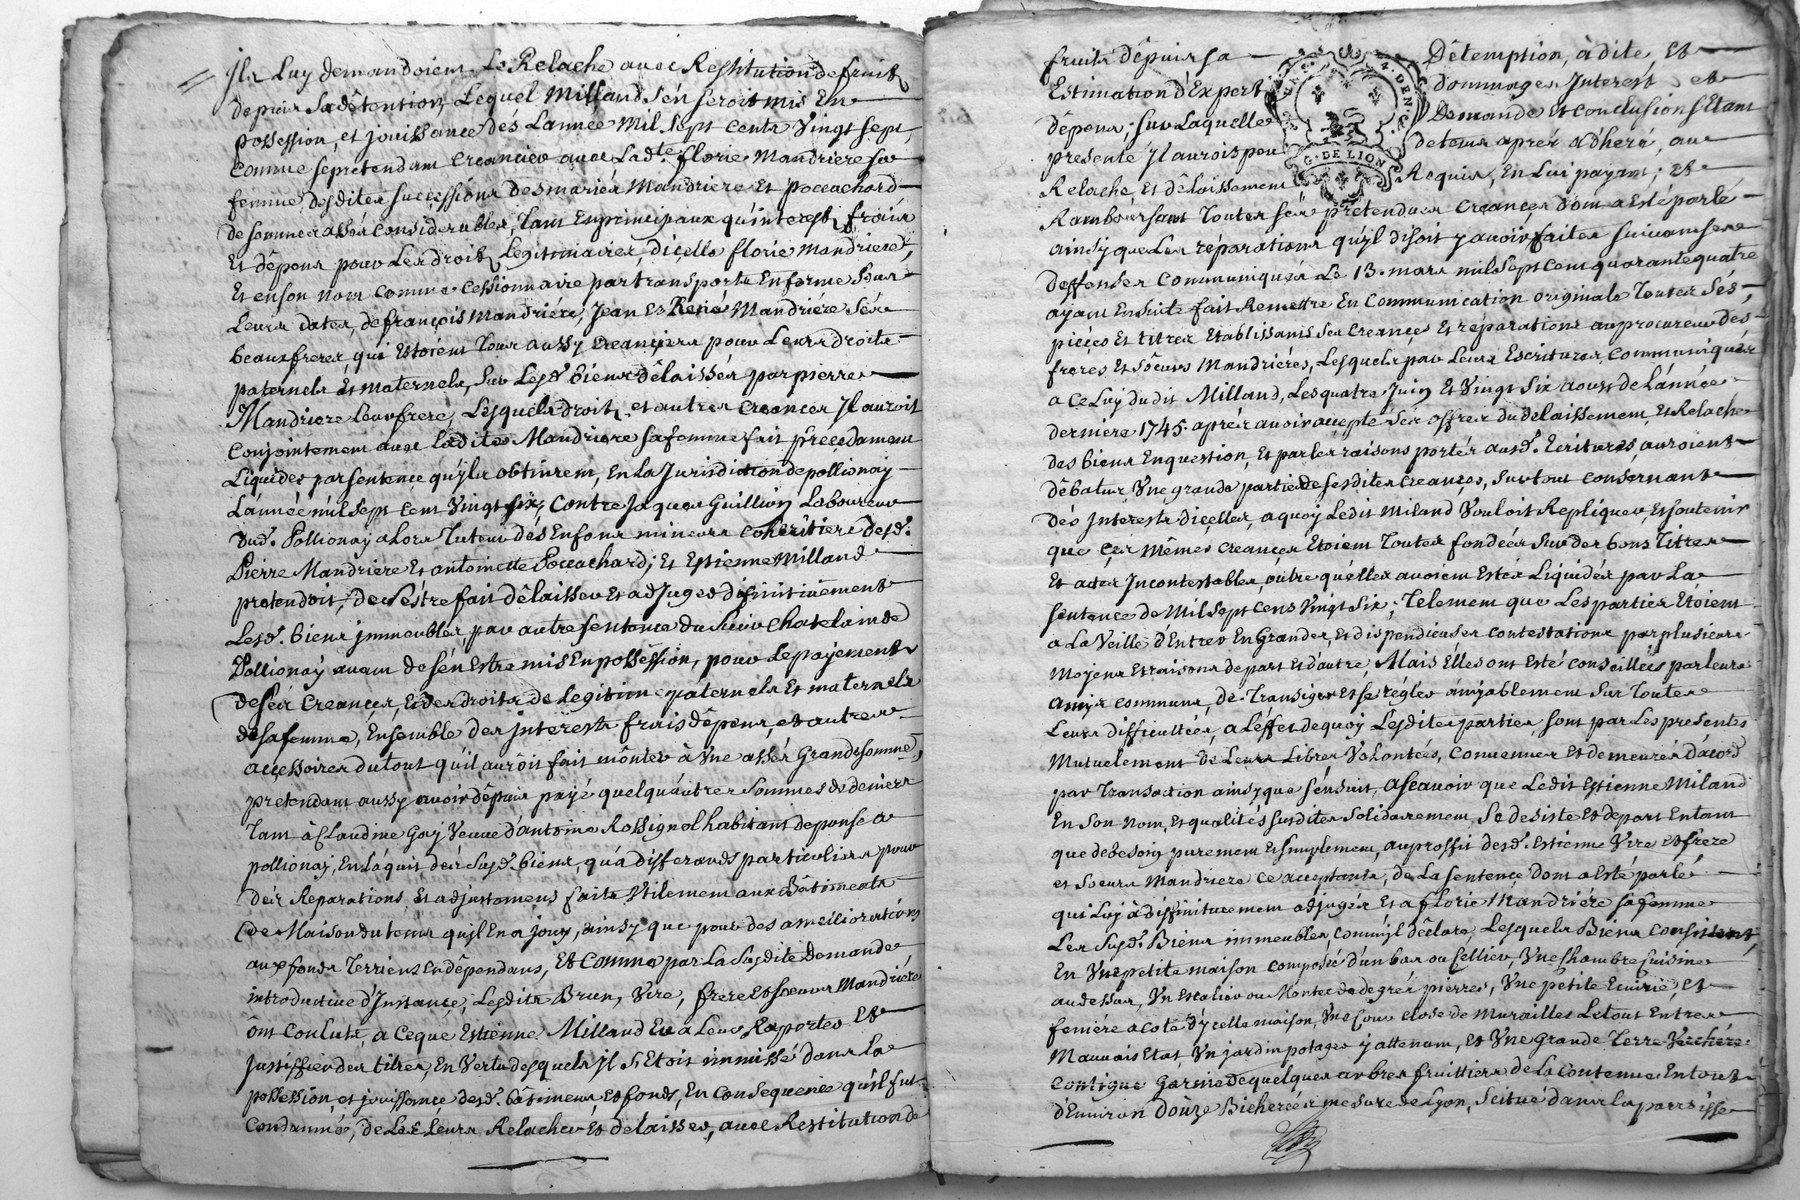 Ils Luy demandoient Le Relache avec Restitution de fruits
depuis Sa détention, Lequel Milland s'en seroit mis En
possession, et jouissance dés Lannée Mil Sept Cents Vingt Sept,
Comme se pretendant Creancier avec Lad.te florie Mandriere sa
femme, desdites successions des mariés Mandriere Et Poccachard
de sommes assés Considerables, Tant En principaux qu'interests, frais
Et dépens pour Les droits Legitimaires, d'icelle florie Mandriere,
Et en son nom comme Cessionnaire par transports En forme Sous
Leurs dates, de françois Mandriére, Jean Et René Mandriére Ses
beauxfreres qui Estoient tous aussy Creanciers pour Leurs droits
paternels Et maternels, Sur Lesd. biens délaissés par pierre
Mandriere Leur frere, Lesquels droits et autres Creances Il auroit
Conjointement avec Ladite Mandriere sa femme fait précedament
Liquides par sentence qu'ils obtinrent, En La Jurisdiction de pollionay
Lannée mil Sept Cent Vingt six, Contre Jaques Guillion Laboureur
dud. Pollionay alors Tuteur dés Enfans mineurs Cohéritiers desd.
Pierre Mandriere Et antoinette Poccachard; Et Estienne Milland
pretendoit, de s'éstre fait délaisser Et adjuger définitivement
Lesd. biens immeubles par autre sentence du Sieur Chatelain de
Pollionay avant de s'en Estre mis En possession, pour Le payement
de ses Creances, Et des droits de Legitime paternels Et maternels
de sa femme, Ensemble des interests frais dépens, et autres
accessoires du tout qu'il auroit fait monter à Une assés Grande somme,
pretendant aussy avoir dépuis payé quelqu'autres Sommes de deniers
Tant à Claudine Gay Veuve d'antoine Rossignol habitant de ponse a
pollionay, En L'aquit des Susd. biens, qu'a differends particuliers pour
dés Reparations, Et adjustemens faits Utilement aux Bâtiments
de Maison du tems qu'il En a jouy, ainsy que pour des améliorations
aux fonds Terriens En dépendans, Et Comme par La Susdite Demande
introductive d'Instance, Lesdits Brun, Vire, frere Et soeurs Mandriére
ônt Conluts, a Ceque Estienne Milland Eu a Leur Raporter Et
Justiffier des titres, En Vertu desquels Il S'Etoit immissé dans La
possession, et jouissance desd. bâtimens, Et fonds, En Consequence qu'il fut
Condamné, de Les Leurs Relacher Et délaisser, avec Restitution de
fruits dépuis sa Détemption, à dite, Et
Estimation d'Expert dommages Interest et
dépens; sur Laquelle Demande Et Conclusions Etant
presenté Il aurois peu de tems aprés adhéré, au
Relaché, Et délaissement Requis, En Lui payant; Et
G. DE LION
Ramboursant Toutes Ses pretendues Creances dont a Esté parlé
ainsy que Les réparations qu'il disoit y avoir faites suivant ses
deffenses Communiqués Le 13. mars mil Sept Cent quarante quatre
ayant Ensuite fait Remettre En Communication originale Toutes Ses,
pieces Et titres Etablissants ses Creances Et réparations au procureur des
freres Et soeurs Mandriéres, Lesquels par Leurs Escritures, Communiqués
a Celuy dudit Milland, Les quatre Juin Et Vingt Six aoust de L'année
derniere 1745. aprés avoir accepté Ses offres du délaissement, Et Relache
des biens En question, Et par les raisons portés ausd. Ecritures, auroient
débatus, Une grande partie de sesdites Creances, Surtout Consernant
dés Interests d'icelles, a quoy Ledit Miland Vouloit Repliquer, Et soutenir
que Ces Mêmes Creances Etoient Toutes fondées Sur des bons Titres
Et actes Incontestables, oûtre qu'elles avoient Estés Liquidés par La
sentence de Mil Sept Cens Vingt Six; Telement que Les parties Etoient
a La Veille d'Entrer En Grandes, Et dispendieuses Contestations par plusieurs
Moyens Et raisons de part Et d'autre, Mais Elles ont Esté Conseillées par Leurs
amys Communs, de Transiger Et se régler amiyablement Sur Toutes
Leurs difficultées, a L'effet de quoy Lesdites parties, sont par Les presentes
Mutuelement de Leurs Libres Volontées, Convenues Et demeurés d'acord
par Transaction ainsy que s'ensuit, a Scavoir que Ledit Estienne Miland
En Son Nom, Et qualités susdites Solidairement, Se desiste Et depart Entant
que de besoin purement Et simplement, au proffit desd. Estienne Vire Et frere
et Soeurs Mandriere Ce acceptants, de La sentence dont a Esté parlé
qui Luy à diffinitivement adjugés Et a florie Mandriére sa femme
Les Susd. Biens immeubles, Comm'il déclare Lesquels Biens Consistent,
En Une petite maison Composée d'un bas ou Cellier, Une Chambre Cuisine
au dessus, Un Escalier ou Montée de degrés pierres, Une petite Ecurie, Et
feniére a Coté d'ycelle maison, Une Cour Close de Murailles Le tout Entres
Mauvais Etat, Un jardin potager y attenant, Et Une Grande Terre Verchére
Contigue Garnie de quelques arbres fruittiers de La Contenue En tout
d'Environ douze Bicherées mesure de Lyon, Scitué dans La parroisse